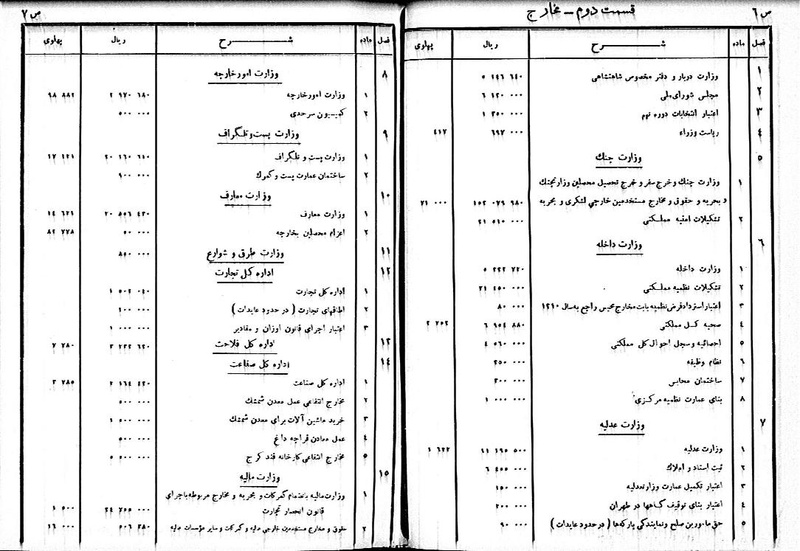 ص ۶
قسمت دوم - مخارج
فصل ماده شرح ریال پهلوی
۱ وزارت دربار و دفتر مخصوص شاهنشاهی
۲ مجلس شورای ملی ۶ ۱۲۰ ۰۰۰
۳ اعتبار انتخابات دوره نهم ۱ ۳۵۰ ۰۰۰
۴ ریاست وزراء ۶۹۲ ۰۰۰ ۴۱۷
۵ وزارت جنگ
۱ وزارت جنگ و خرج سفر و مخارج تحصیل محصلین وزارت جنگ
و بحریه و حقوق و مخارج مستخدمین خارجی لشکری و بحریه ۱۵۲ ۰۷۹ ۹۸۰ ۷۱ ۰۰۰
۲ تشکیلات امنیه مملکتی ۲۱ ۵۱۰ ۰۰۰
۶ وزارت داخله
۱ وزارت داخله ۵ ۲۲۲ ۷۲۰
۲ تشکیلات نظمیه مملکتی ۲۱ ۴۵۰ ۰۰۰
۳ اعتبار استرداد قرض نظمیه بابت مخارج محبس راجع به سال ۱۳۱۰ ۸۰ ۰۰۰
۴ صحیه کل مملکتی ۶ ۹۵۴ ۸۸۰ ۲ ۲۵۲
۵ احصائیه و سجل احوال کل مملکتی ۴ ۵۶۰ ۰۰۰
۶ نظام وظیفه ۲۵۰ ۰۰۰
۷ ساختمان محابس ۳۰۰ ۰۰۰
۸ بنای عمارت نظمیه مرکزی ۱ ۰۰۰ ۰۰۰
۷ وزارت عدلیه
۱ وزارت عدلیه ۱۱ ۱۹۵ ۵۰۰ ۱ ۶۲۲
۲ ثبت اسناد و املاک ۶ ۴۵۵ ۰۰۰
۳ اعتبار تکمیل عمارت وزارت عدلیه ۱۵۰ ۰۰۰
۴ اعتبار بنای توقیف گاهها در طهران ۲۰۰ ۰۰۰
۵ حق مامورین صلح و نمایندگی پارکه‌ها (در حدود عایدات) ۹۰ ۰۰۰
ص ۷
فصل ماده شرح ریال پهلوی
۸ وزارت امور خارجه
۱ وزارت امور خارجه ۲ ۹۷۰ ۶۸۰ ۹۸ ۸۸۲
۲ کمیسیون سرحدی ۵۰۰ ۰۰۰
۹ وزارت پست و تلگراف
۱ وزارت پست و تلگراف ۲۰ ۱۶۰ ۶۴۰ ۱۷ ۱۲۱
۲ ساختمان عمارت پست و گمرک ۹۰۰ ۰۰۰
۱۰ وزارت معارف
۱ وزارت معارف ۲۰ ۸۰۶ ۴۳۰ ۱۴ ۶۲۱
۲ اعزام محصلین بخارجه ۵۰ ۰۰۰ ۸۲ ۷۷۸
۱۱ وزارت طرق و شوارع ۸۵۰ ۰۰۰
۱۲ اداره کل تجارت
۱ اداره کل تجارت ۱ ۵۰۲ ۰۴۰
۲ اطاقهای تجارت (در حدود عایدات) ۱۰۰ ۰۰۰
۳ اعتبار اجرای قانون اوزان و مقادیر ۱ ۰۰۰ ۰۰۰
۱۳ اداره کل فلاحت ۳ ۲۳۲ ۶۲۰ ۷ ۷۸۰
۱۴ اداره کل صناعت
۱ اداره کل صناعت ۲ ۱۶۴ ۴۲۰ ۲ ۷۸۵
۲ مخارج انتفاعی عمل معدن شمشک ۵۰۰ ۰۰۰
۳ خرید ماشین آلات برای معدن شمشک ۱ ۵۰۰ ۰۰۰
۴ عمل معادن قراچه داغ ۵۰۰ ۰۰۰
۵ مخارج انتفاعی کارخانه قند کرج ۵۰۰ ۰۰۰
۱۵ وزارت مالیه
۱ وزارت مالیه بانضمام گمرکات و بحریه و مخارج مربوطه باجرای
قانون انحصار تجارت ۲۴ ۷۵۵ ۰۰۰ ۱ ۵۰۰
۲ حقوق و مخارج مستخدمین خارجی مالیه و گمرکات و سایر مؤسسات مالیه ۵۰۶ ۲۸۰ ۱۶ ۰۰۰